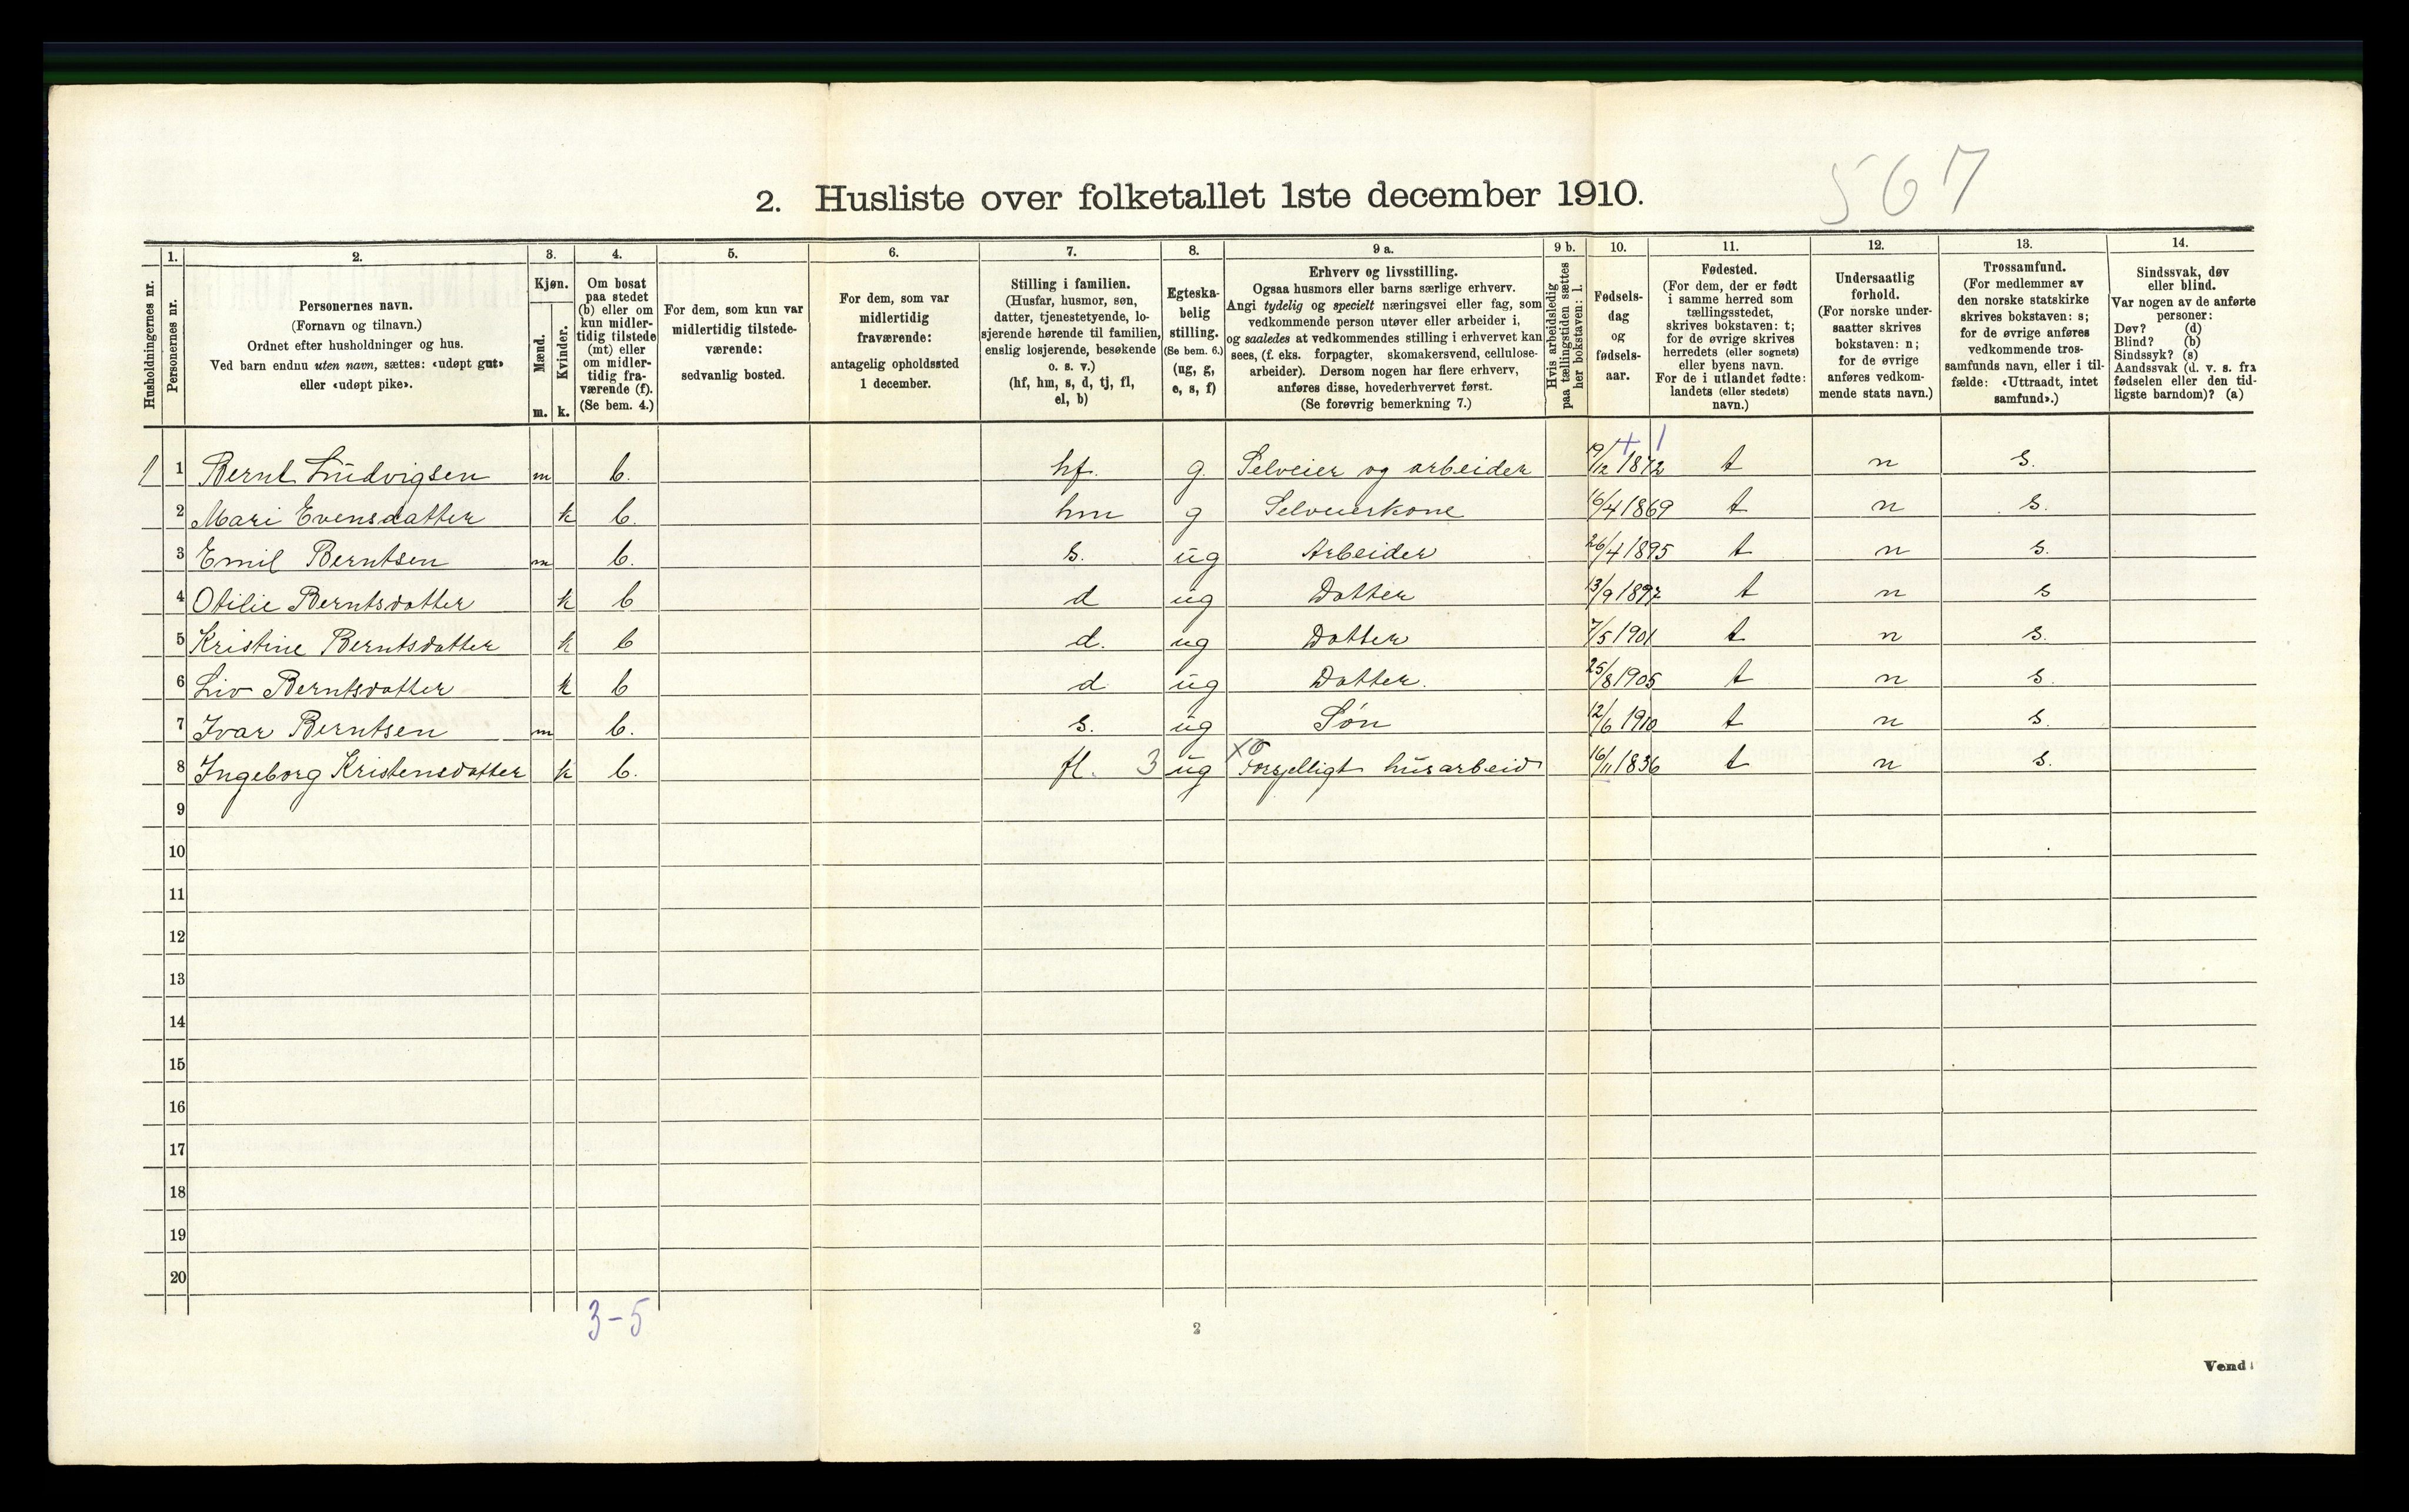 567
2. Husliste over folketallet 1ste december 1910.
Husholdningernes nr.
1.
Personernes nr.
2.
Personernes navn.
(Fornavn og tilnavn.)
Ordnet efter husholdninger og hus.
Ved barn endnu uten navn, sættes: «udøpt gut»
eller «udøpt pike».
3.
Kjøn.
Mænd.
Kvinder.
m. k.
4.
Om bosat
paa stedet
(b) eller om
kun midler-
tidig tilstede
(mt) eller
om midler-
tidig fra-
værende (f).
(Se bem. 4.)
5.
For dem, som kun var
midlertidig tilstede-
værende:
sedvanlig bosted.
6.
For dem, som var
midlertidig
fraværende:
antagelig opholdssted
1 december.
7.
Stilling i familien.
(Husfar, husmor, søn,
datter, tjenestetyende, lo-
sjerende hørende til familien,
enslig losjerende, besøkende
o. s. v.)
(hf, hm, s, d, tj, fl,
el, b)
8.
Egteska-
belig
stilling.
(Se bem. 6.)
(ug, g,
e, s, f)
9 a.
Erhverv og livsstilling.
Ogsaa husmors eller barns særlige erhverv.
Angi tydelig og specielt næringsvei eller fag, som
vedkommende person utøver eller arbeider i,
og saaledes at vedkommendes stilling i erhvervet kan
sees, (f. eks. forpagter, skomakersvend, cellulose-
arbeider). Dersom nogen har flere erhverv,
anføres disse, hovederhvervet først.
(Se forøvrig bemerkning 7.)
9 b.
Hvis arbeidsledig
paa tællingstiden sættes
her bokstaven: l.
10.
Fødsels-
dag
og
fødsels-
aar.
11.
Fødested.
(For dem, der er født
i samme herred som
tællingsstedet,
skrives bokstaven: t;
for de øvrige skrives
herredets (eller sognets)
eller byens navn.
For de i utlandet fødte:
landets (eller stedets)
navn.)
12.
Undersaatlig
forhold.
(For norske under-
saatter skrives
bokstaven: n;
for de øvrige
anføres vedkom-
mende stats navn.)
13.
Trossamfund.
(For medlemmer av
den norske statskirke
skrives bokstaven: s;
for de øvrige anføres
vedkommende tros-
samfunds navn, eller i til-
fælde: «Uttraadt, intet
samfund».)
14.
Sindssvak, døv
eller blind.
Var nogen av de anførte
personer:
Døv? (d)
Blind? (b)
Sindssyk? (s)
Aandssvak (d. v. s. fra
fødselen eller den tid-
ligste barndom)? (a)
+ 1
1 1 Bernt Ludvigsen m b. hf. g. Selveier og arbeider 19/12 1872 t n s.
2 Mari Evensdatter k b. hm g Selveierkone 16/4 1869 t n s.
3 Emil Berntsen m b. s. ug Arbeider 26/4 1895 t n s.
4 Otilie Berntsdatter k b d ug Datter 13/9 1897 t n s
5 Kristine Berntsdatter k b d. ug Datter 7/5 1901 t n s.
6 Liv Berntsdatter k b d ug Datter. 25/8 1905 t n s.
7 Ivar Berntsen m b. s. ug Søn 12/6 1910 t n s.
8 Ingeborg Kristensdatter k b. fl. 3 ug Forsjelligt husarbeid 16/11 1836 t n s.
9
10
11
12
13
14
15
16
17
18
19
20
3-5
2
Vend!